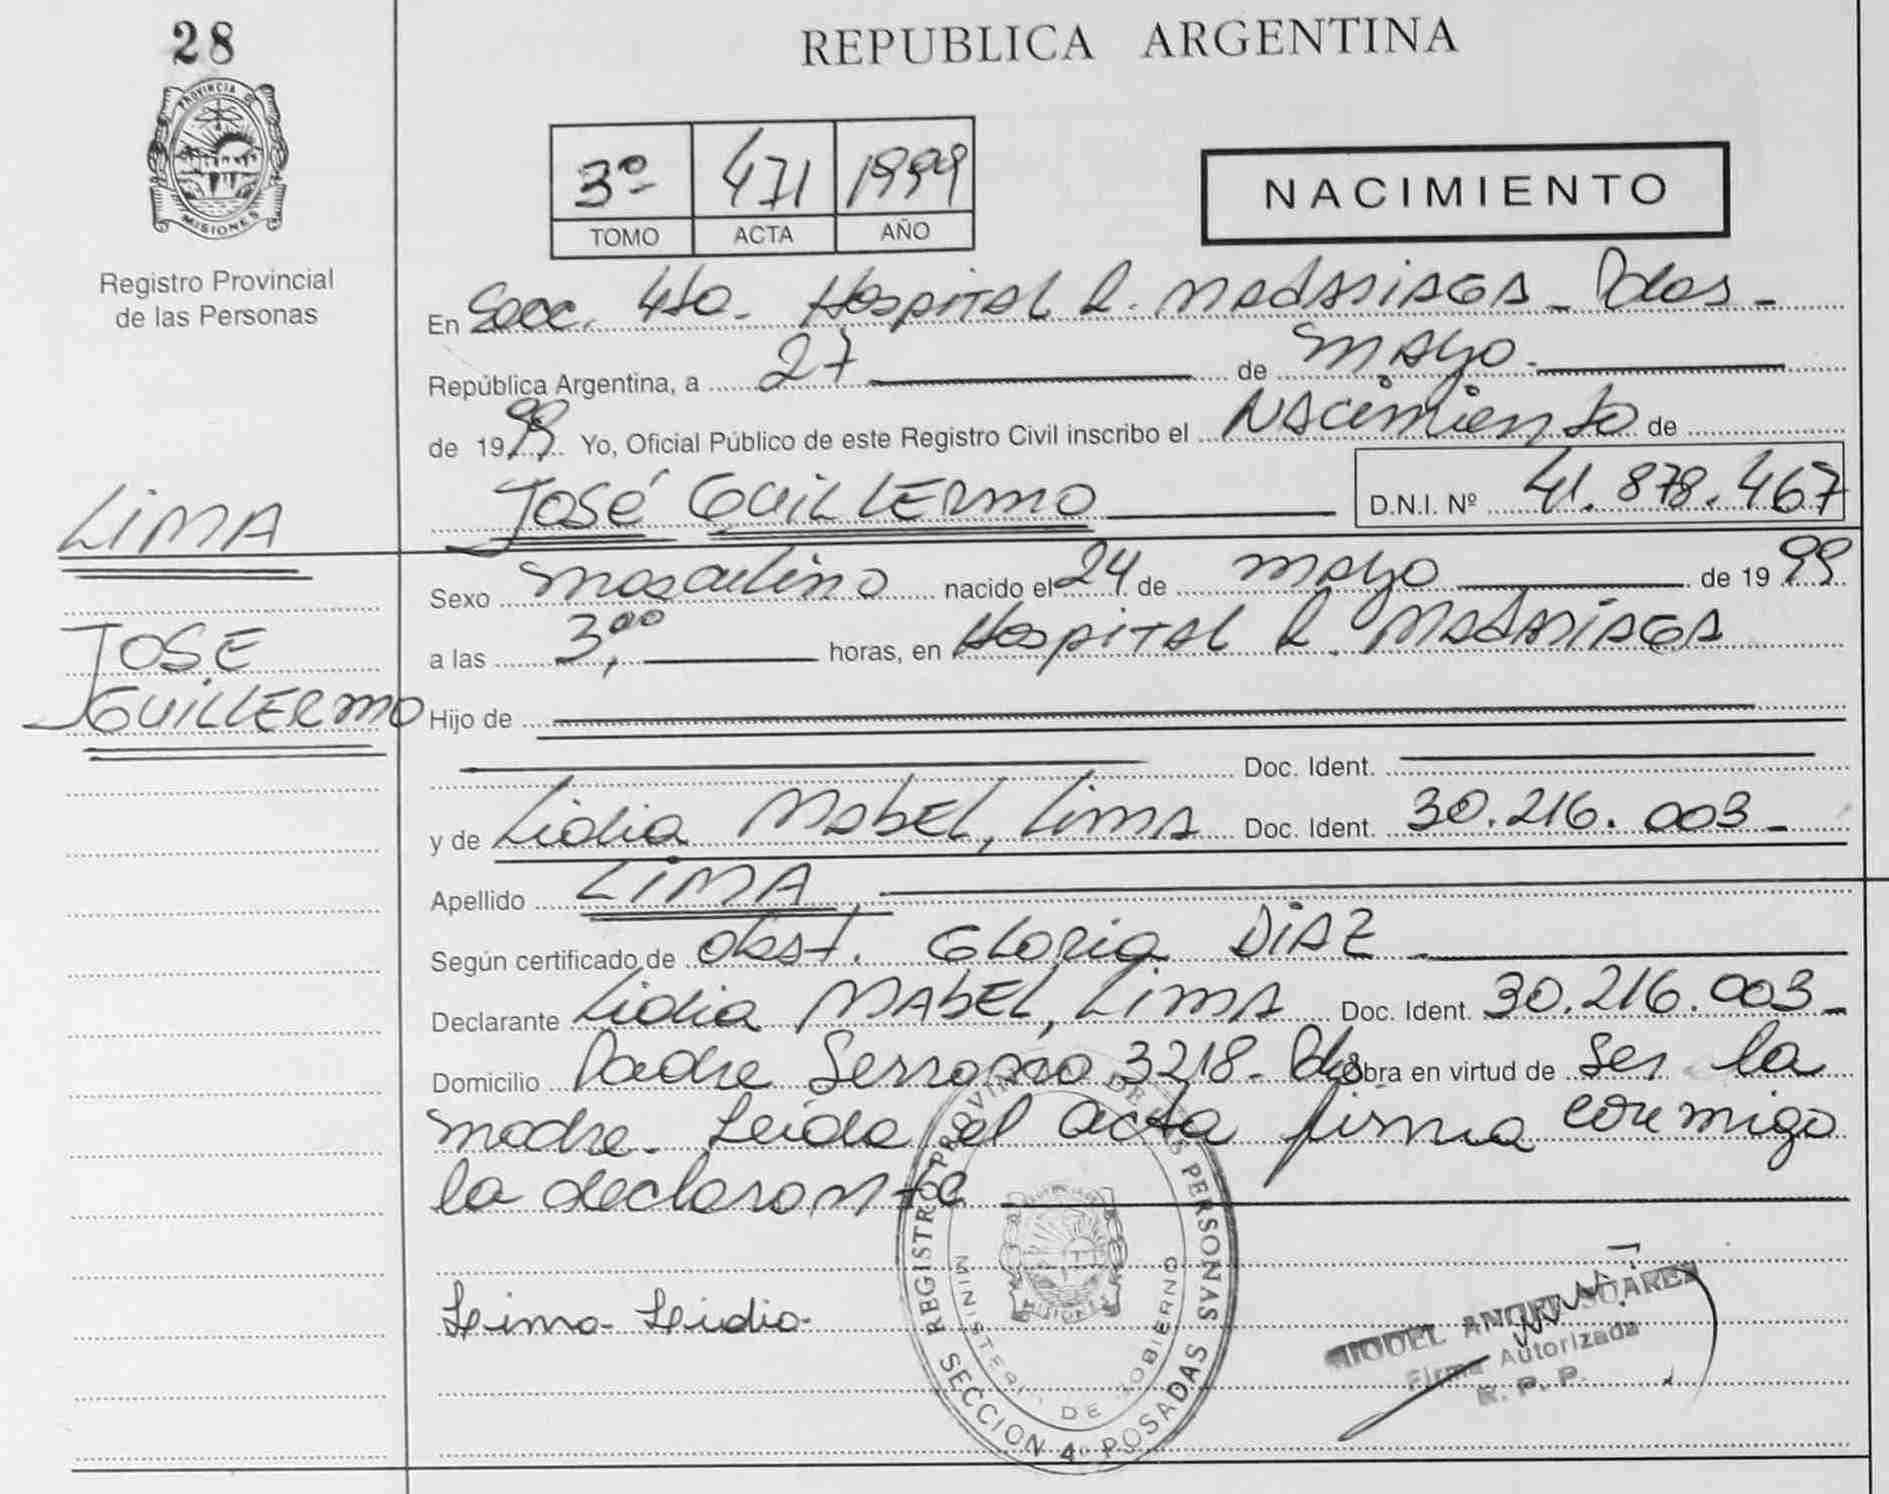 28
PROVINCIA DE
MISIONES
Registro Provincial
de las Personas
REPUBLICA ARGENTINA
3º 471 1999
TOMO ACTA AÑO
NACIMIENTO
En Secc. 4to. Hospital R. Madariaga - Pdas -
República Argentina, a 27 de Mayo.
de 1999. Yo, Oficial Público de este Registro Civil inscribo el Nacimiento de
JOSÉ GUILLERMO D.N.I. Nº 41.878.467
LIMA
JOSE
GUILLERMO
Sexo Masculino nacido el 24 de mayo de 1999
a las 3,00 horas, en Hospital R. Madariaga
Hijo de
Doc. Ident.
y de Lidia Mabel, Lima Doc. Ident. 30.216.003 -
Apellido LIMA
Según certificado de Obst. Gloria DIAZ
Declarante Lidia MABEL, Lima Doc. Ident. 30.216.003 -
Domicilio Padre Serrano 3218 - Pdas obra en virtud de ser la
madre. Leída el acta firma conmigo
la declarante
Leima Leidia
REGISTRO PROVINCIAL DE LAS PERSONAS
MINISTERIO DE GOBIERNO
SECCION 4º POSADAS
MIGUEL ANGEL SUAREZ
Firma Autorizada
R. P. P.